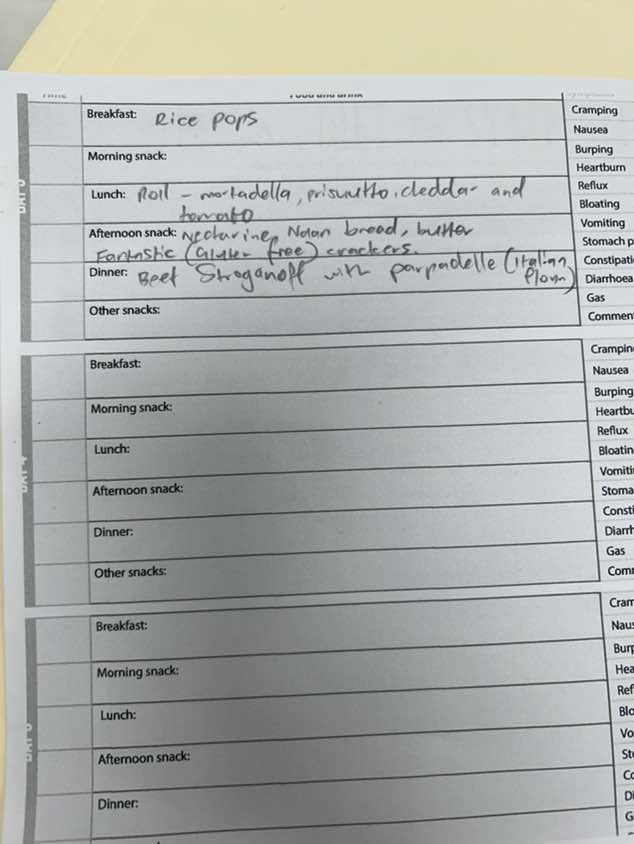 Food and drink
Breakfast: Rice pops
Cramping
Nausea
Morning snack:
Burping
Heartburn
Lunch: Roll - mortadella, prisuutto, cleddar and
tomato
Reflux
Bloating
Afternoon snack: Nectarine, Nolan bread, butter
Fantastic (Gluten free) crackers.
Vomiting
Stomach p
Dinner: Beef Stroganoff with parpadelle (Italian
flour)
Constipati
Diarrhoea
Other snacks:
Gas
Commen
DAY 4
Breakfast:
Crampin
Nausea
Morning snack:
Burping
Heartbu
Lunch:
Reflux
Bloatin
Afternoon snack:
Vomiti
Stoma
Dinner:
Consti
Diarrh
Other snacks:
Gas
Com
Breakfast:
Cram
Naus
Morning snack:
Burp
Hea
Lunch:
Ref
Blo
Afternoon snack:
Vo
St
Dinner:
Co
Di
G